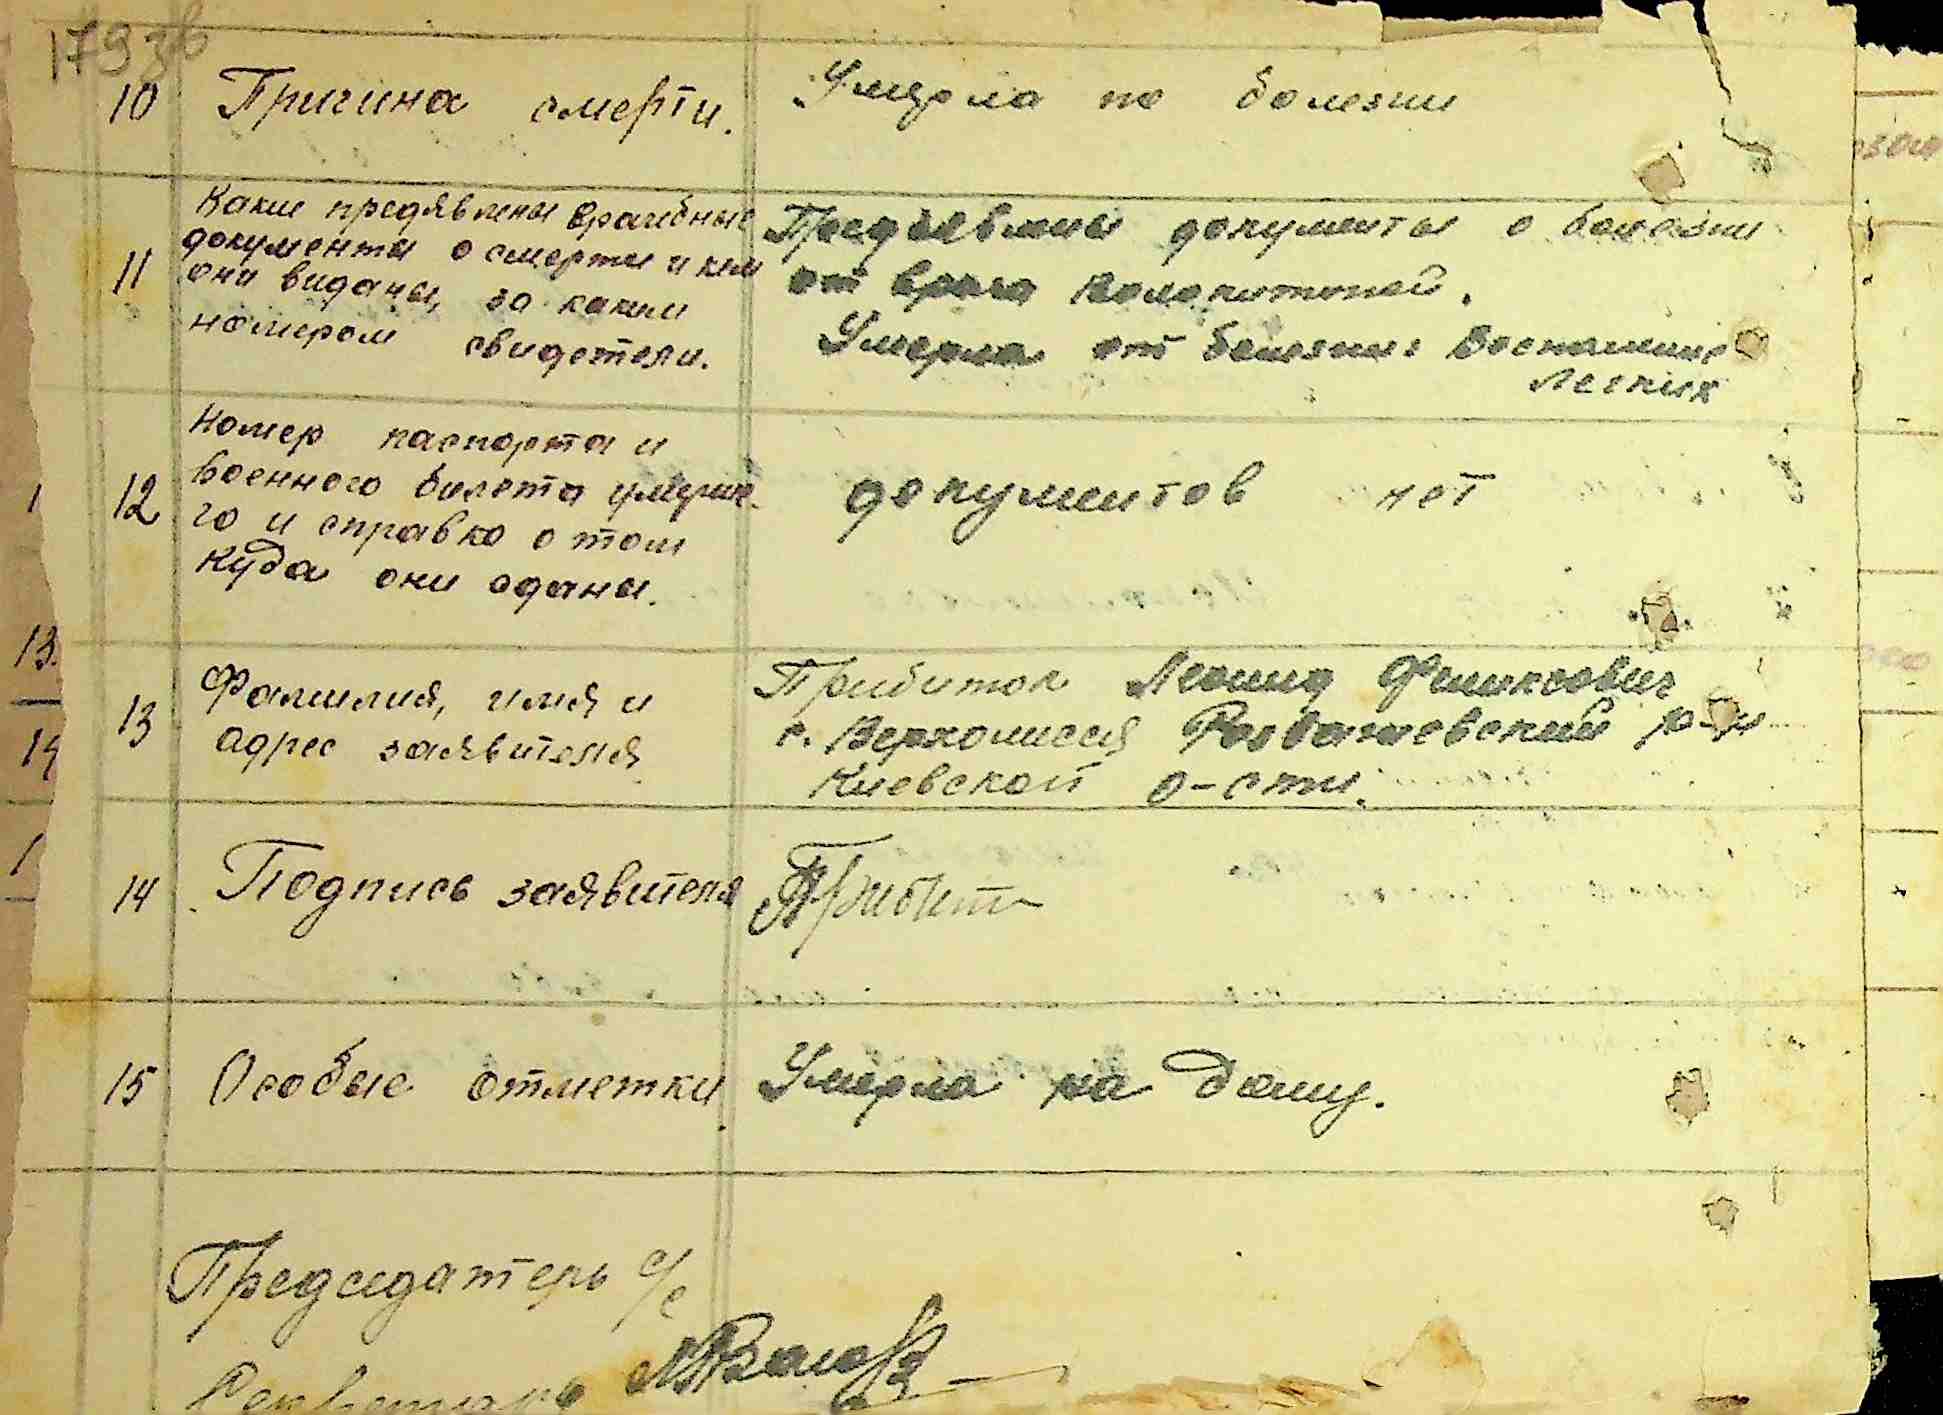 10 Причина смерти. Умерла по болезни
Какие предявлены врачебные
документы о смерти и кем
11 они виданы, за каким
номером свидетели.
Предъявлены документы о болезни
от врача
Умерла от болезни: Воспаление
Легких
Номер паспорта и
военного билета умерше-
12 го и справка о том
куда они сданы.
документов нет
13 Фамилия, имя и
адрес заявителя
Прибиток Леонид Феликсович
с. Верхолесся Розважевский р-н
Киевской о-сти.
14 Подпись заявителя Прибит
15 Особые отметки. Умерла на дому.
Председатель с/с
Секретарь